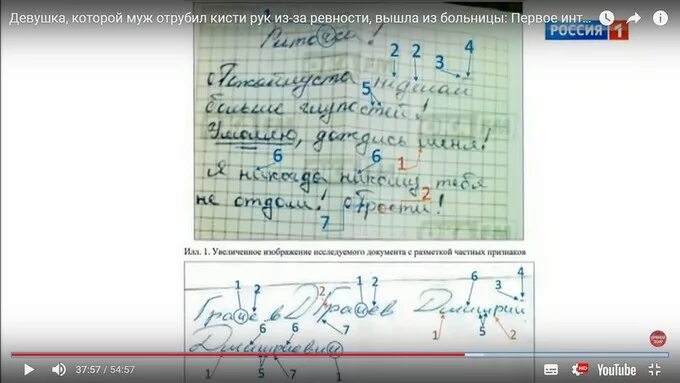 Девушка, которой муж отрубил кисти рук из-за ревности, вышла из больницы: Первое инт...
РОССИЯ 1
Риточка!
2 2 3 4
Пожалуйста неделай
5
больше глупостей!
Умоляю, дождись меня!
6 6 1
Я никогда никому тебя
2
не отдам! Прости!
7
Илл. 1. Увеличенное изображение исследуемого документа с разметкой частных признаков
1 2 2 1 2 6 3 4
Грачев Д Грачев Дмитрий
6 6 7 1 5 2
Дмитриевич
1 5 7 1
ПРЯМОЙ ЭФИР
37:57 / 54:57
HD
YouTube